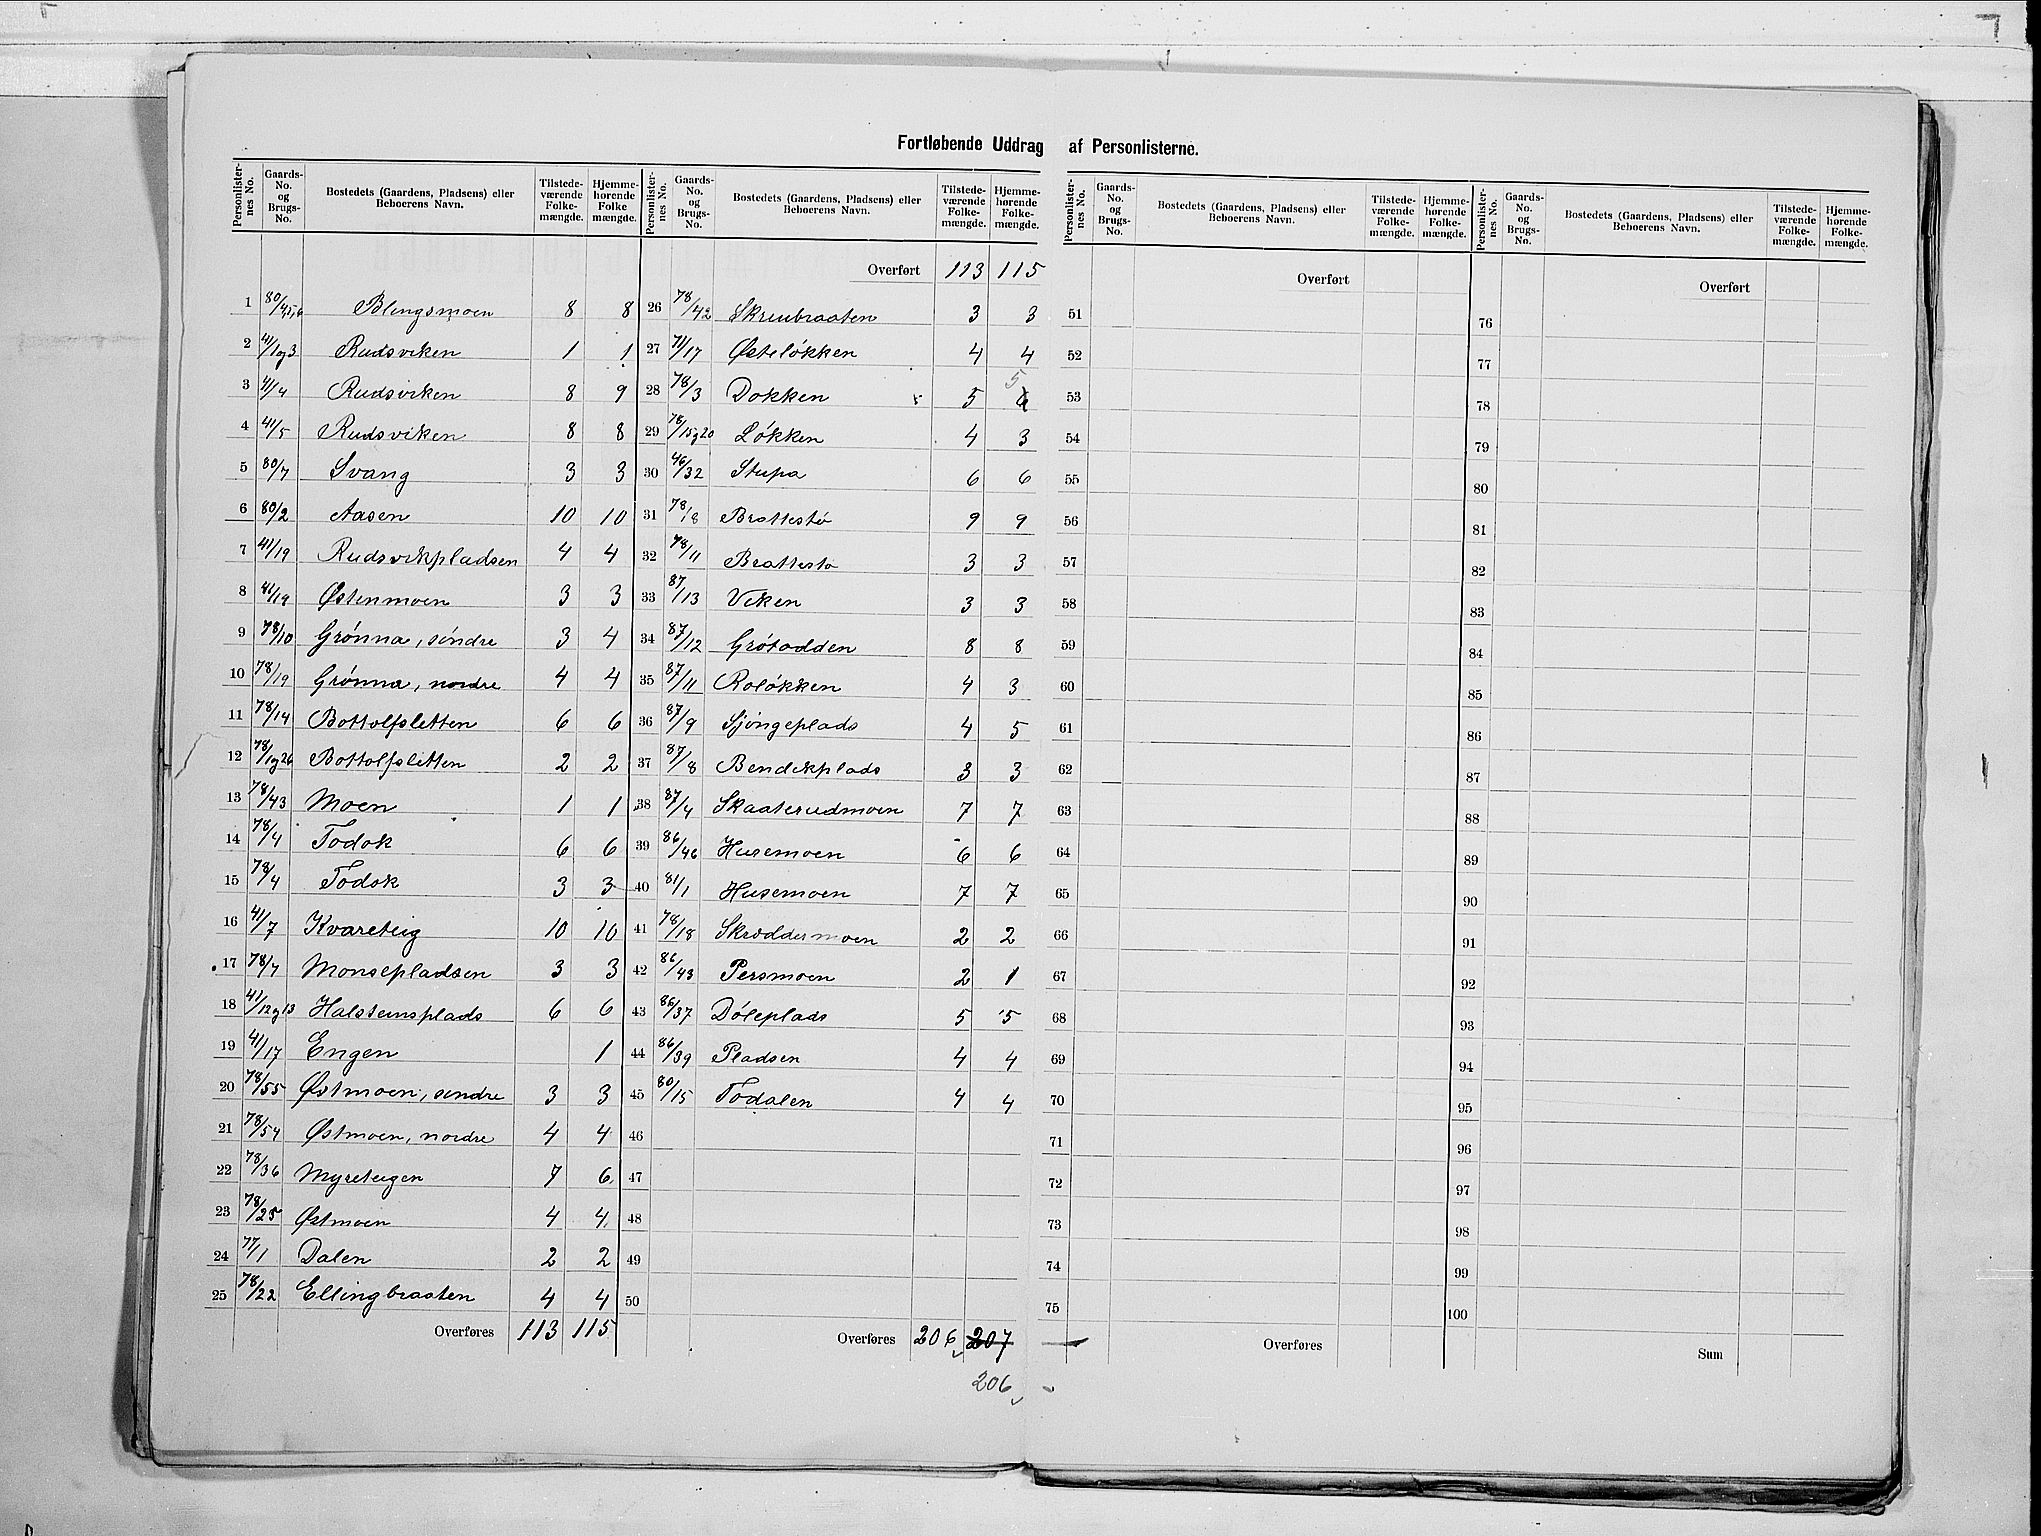 Fortløbende Uddrag af Personlisterne.
Personlister-nes No. | Gaards-No. og Brugs-No. | Bostedets (Gaardens, Pladsens) eller Beboerens Navn. | Tilstede-værende Folke-mængde. | Hjemme-hørende Folke mængde.
1 80/4,5,6 Blingsmoen 8 8
2 41/1og3 Rudsviken 1 1
3 41/4 Rudsviken 8 9
4 41/5 Rudsviken 8 8
5 80/7 Svang 3 3
6 80/2 Aasen 10 10
7 41/19 Rudsvikpladsen 4 4
8 41/19 Østenmoen 3 3
9 78/10 Grønna, søndre 3 4
10 78/19 Grønna, nordre 4 4
11 78/14 Bottolfsletten 6 6
12 78/1og26 Bottolfsletten 2 2
13 78/43 Moen 1 1
14 78/4 Todok 6 6
15 78/4 Todok 3 3
16 41/7 Kvareteig 10 10
17 78/7 Monsepladsen 3 3
18 41/12og13 Halsteinsplads 6 6
19 41/17 Engen 1
20 78/55 Østmoen, søndre 3 3
21 78/54 Østmoen, nordre 4 4
22 78/36 Myreteigen 7 6
23 78/25 Østmoen 4 4
24 77/1 Dalen 2 2
25 78/22 Ellingbraaten 4 4
Overføres 113 115
Personlister-nes No. | Gaards-No. og Brugs-No. | Bostedets (Gaardens, Pladsens) eller Beboerens Navn. | Tilstede-værende Folke-mængde. | Hjemme-hørende Folke-mængde.
Overført 113 115
26 78/42 Skreubraaten 3 3
27 71/17 Østeløkken 4 4
28 78/3 Dokken 5 6 5
29 78/15og20 Løkken 4 3
30 46/32 Stupa 6 6
31 78/8 Brattestø 9 9
32 78/11 Brattestø 3 3
33 87/13 Viken 3 3
34 87/12 Grøtodden 8 8
35 87/11 Roløkken 4 3
36 87/9 Sjongeplads 4 5
37 87/8 Bendikplads 3 3
38 87/4 Skaaterudmoen 7 7
39 86/46 Husemoen 6 6
40 81/1 Husemoen 7 7
41 78/18 Skræddermoen 2 2
42 86/43 Persmoen 2 1
43 86/37 Døleplads 5 5
44 86/39 Pladsen 4 4
45 80/15 Tødalen 4 4
46
47
48
49
50
Overføres 206 207
206
Personlister-nes No. | Gaards-No. og Brugs-No. | Bostedets (Gaardens, Pladsens) eller Beboerens Navn. | Tilstede-værende Folke-mængde. | Hjemme-hørende Folke-mængde.
Overført
51
52
53
54
55
56
57
58
59
60
61
62
63
64
65
66
67
68
69
70
71
72
73
74
75
Overføres
Personlister-nes No. | Gaards-No. og Brugs-No. | Bostedets (Gaardens, Pladsens) eller Beboerens Navn. | Tilstede-værende Folke-mængde. | Hjemme-hørende Folke-mængde.
Overført
76
77
78
79
80
81
82
83
84
85
86
87
88
89
90
91
92
93
94
95
96
97
98
99
100
Sum